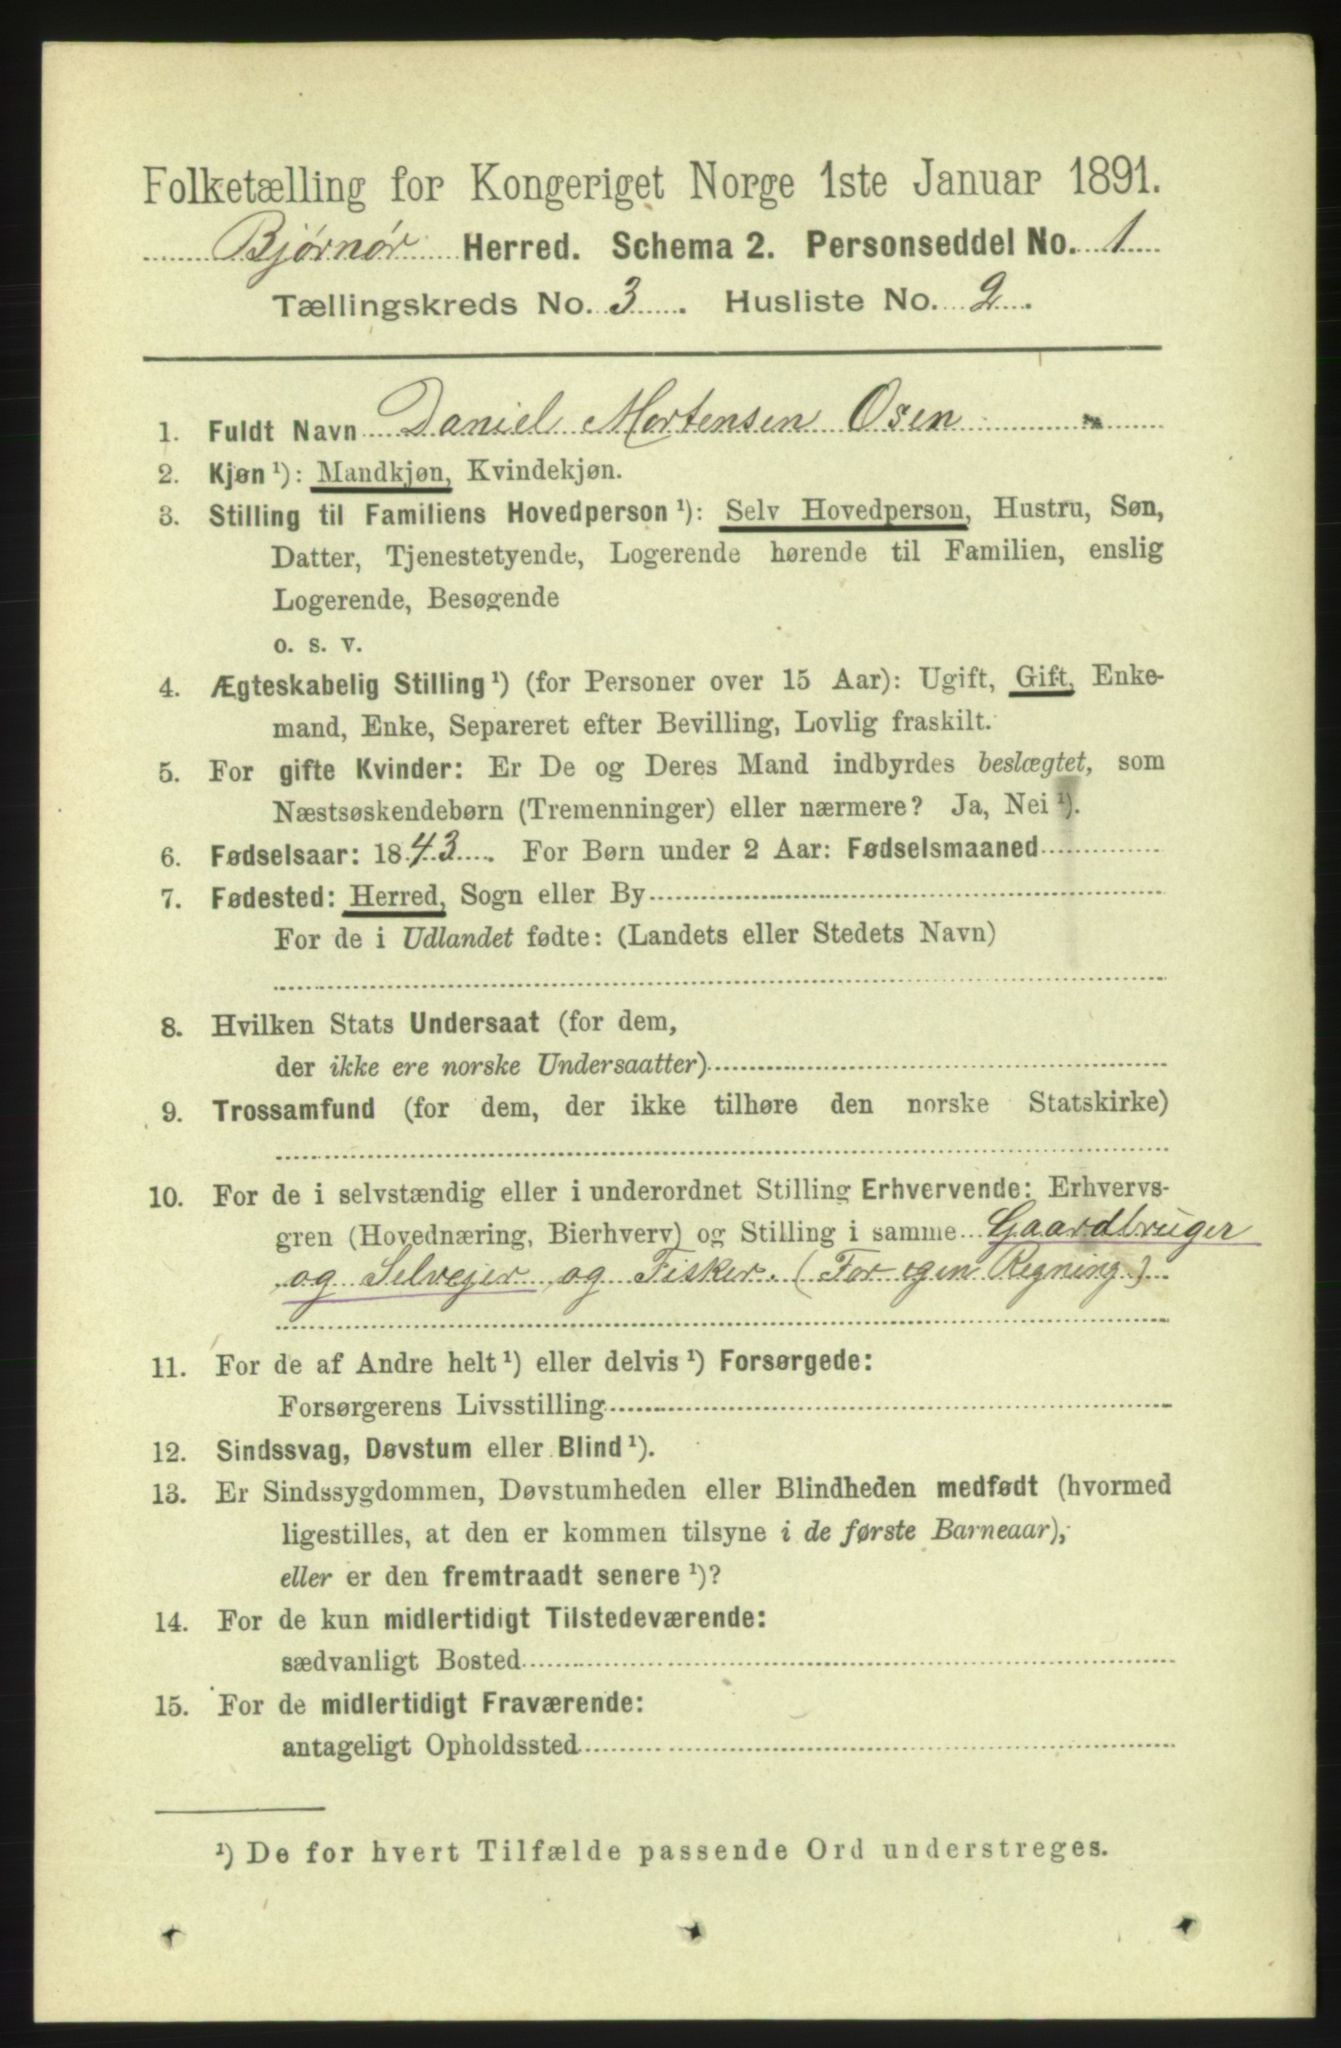 Folketælling for Kongeriget Norge 1ste Januar 1891.
Bjørnør Herred. Schema 2. Personseddel No. 1
Tællingskreds No. 3. Husliste No. 2.
1. Fuldt Navn Daniel Mortensen Osen
2. Kjøn ¹): Mandkjøn, Kvindekjøn.
3. Stilling til Familiens Hovedperson ¹): Selv Hovedperson, Hustru, Søn,
Datter, Tjenestetyende, Logerende hørende til Familien, enslig
Logerende, Besøgende
o. s. v.
4. Ægteskabelig Stilling ¹) (for Personer over 15 Aar): Ugift, Gift, Enke-
mand, Enke, Separeret efter Bevilling, Lovlig fraskilt.
5. For gifte Kvinder: Er De og Deres Mand indbyrdes beslægtet, som
Næstsøskendebørn (Tremenninger) eller nærmere? Ja, Nei ¹).
6. Fødselsaar: 1843. For Børn under 2 Aar: Fødselsmaaned
7. Fødested: Herred, Sogn eller By
For de i Udlandet fødte: (Landets eller Stedets Navn)
8. Hvilken Stats Undersaat (for dem,
der ikke ere norske Undersaatter)
9. Trossamfund (for dem, der ikke tilhøre den norske Statskirke)
10. For de i selvstændig eller i underordnet Stilling Erhvervende: Erhvervs-
gren (Hovednæring, Bierhverv) og Stilling i samme Gaardbruger
og Selvejer og Fisker. (For egen Regning.)
11. For de af Andre helt ¹) eller delvis ¹) Forsørgede:
Forsørgerens Livsstilling
12. Sindssvag, Døvstum eller Blind ¹).
13. Er Sindssygdommen, Døvstumheden eller Blindheden medfødt (hvormed
ligestilles, at den er kommen tilsyne i de første Barneaar),
eller er den fremtraadt senere ¹)?
14. For de kun midlertidigt Tilstedeværende:
sædvanligt Bosted
15. For de midlertidigt Fraværende:
antageligt Opholdssted
¹) De for hvert Tilfælde passende Ord understreges.